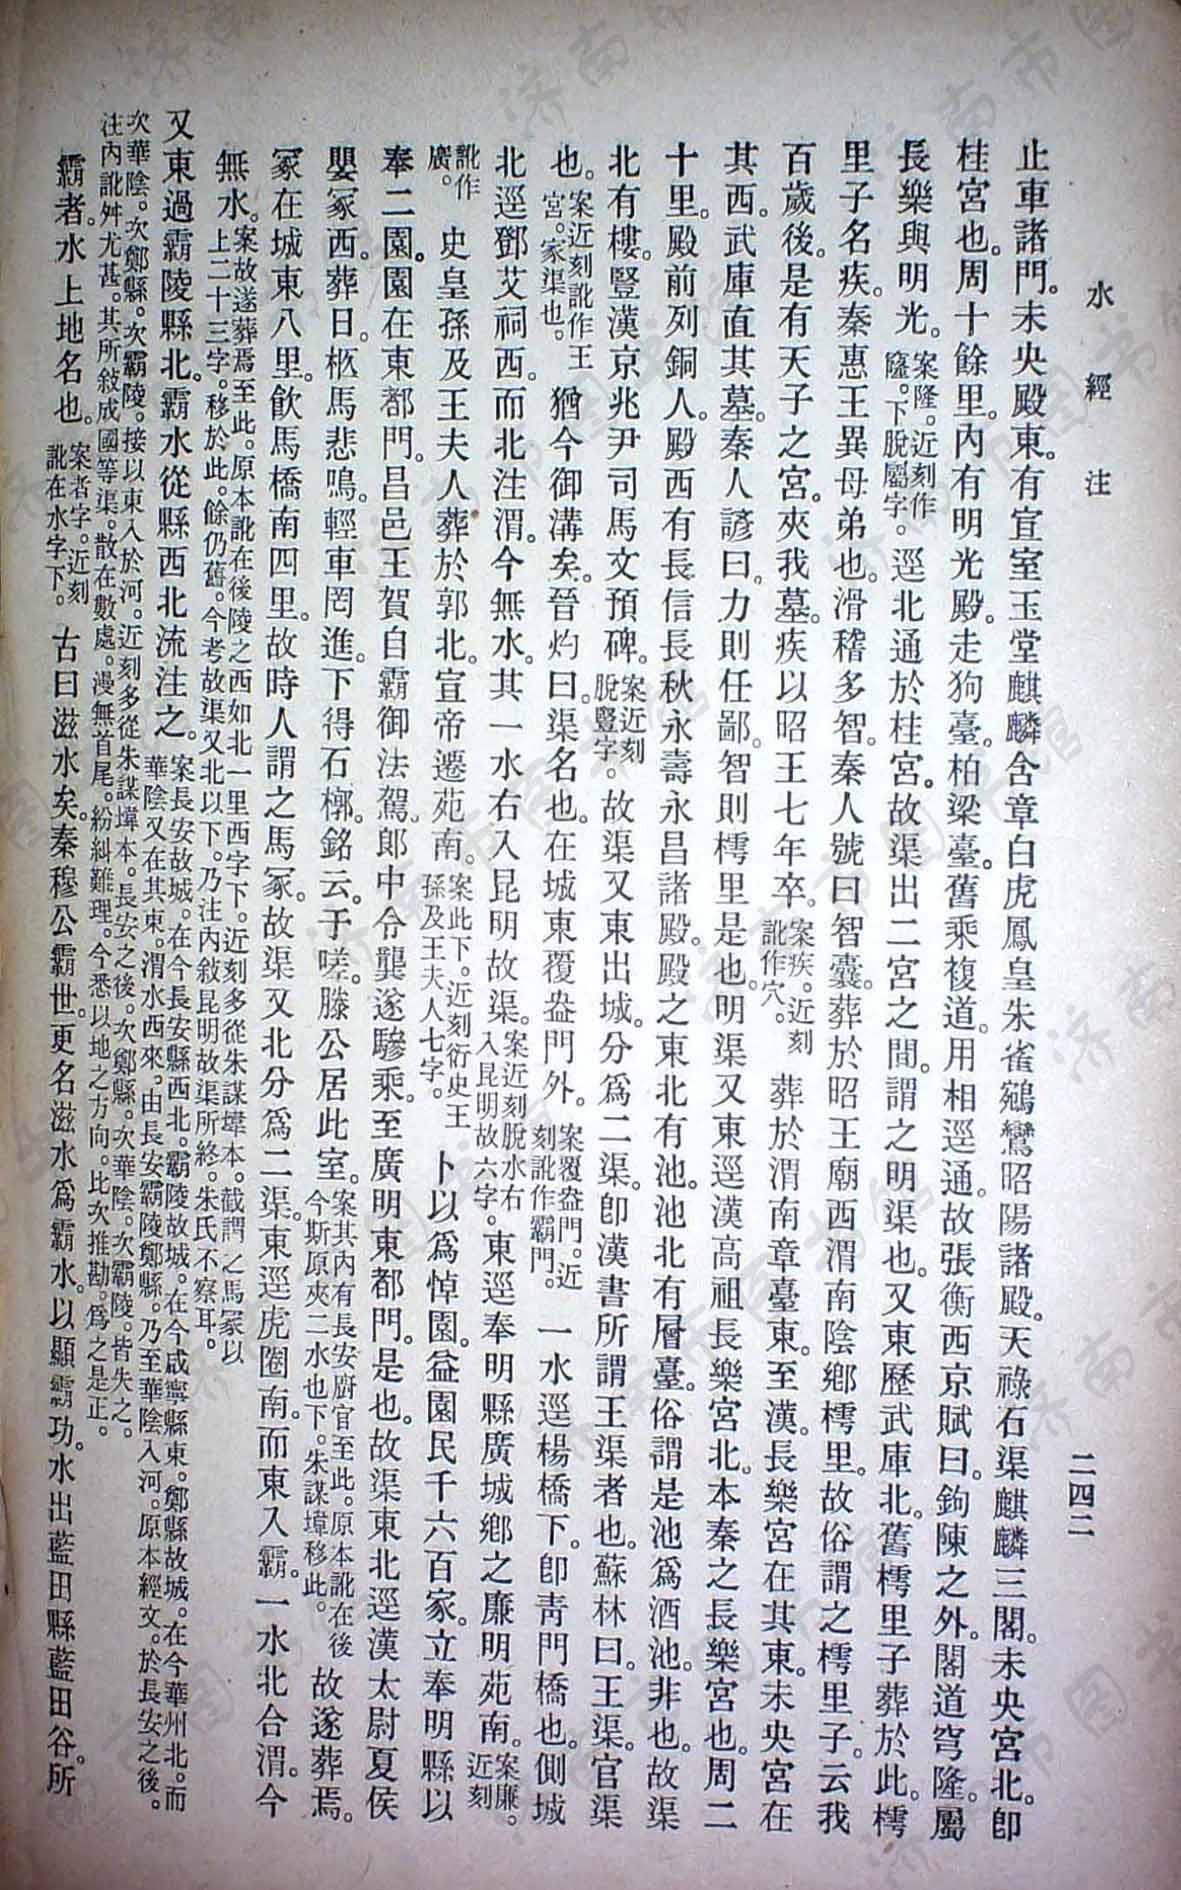 水經注
二四二
止車諸門。未央殿東。有宣室玉堂麒麟含章白虎鳳皇朱雀鵷鸞昭陽諸殿。天祿石渠麒麟三閣。未央宮北。卽
桂宮也。周十餘里。內有明光殿。走狗臺。柏梁臺。舊乘複道。用相逕通。故張衡西京賦曰。鉤陳之外。閣道穹隆。屬
長樂與明光。案隆。近刻作窿。下脫屬字。逕北通於桂宮。故渠出二宮之間。謂之明渠也。又東歷武庫北。舊樗里子葬於此。樗
里子名疾。秦惠王異母弟也。滑稽多智。秦人號曰智囊。葬於昭王廟西渭南陰鄉樗里。故俗謂之樗里子。云我
百歲後。是有天子之宮。夾我墓。疾以昭王七年卒。案疾。近刻訛作穴。葬於渭南章臺東。至漢。長樂宮在其東。未央宮在
其西。武庫直其墓。秦人諺曰。力則任鄙。智則樗里是也。明渠又東逕漢高祖長樂宮北。本秦之長樂宮也。周二
十里。殿前列銅人。殿西有長信長秋永壽永昌諸殿。殿之東北有池。池北有層臺。俗謂是池爲酒池。非也。故渠
北有樓。豎漢京兆尹司馬文預碑。案近刻脫豎字。故渠又東出城。分爲二渠。卽漢書所謂王渠者也。蘇林曰。王渠。官渠
也。案近刻訛作王宮。家渠也。猶今御溝矣。晉灼曰。渠名也。在城東覆盎門外。案覆盎門。近刻訛作霸門。一水逕楊橋下。卽青門橋也。側城
北逕鄧艾祠西。而北注渭。今無水。其一水右入昆明故渠。案近刻脫水右入昆明故六字。東逕奉明縣廣城鄉之廉明苑南。案廉。近刻
訛作廣。史皇孫及王夫人葬於郭北。宣帝遷苑南。案此下。近刻衍史王孫及王夫人七字。卜以爲悼園。益園民千六百家。立奉明縣以
奉二園。園在東都門。昌邑王賀自霸御法駕。郎中令龔遂驂乘。至廣明東都門。是也。故渠東北逕漢太尉夏侯
嬰冢西。葬日。柩馬悲鳴。輕車罔進。下得石槨。銘云。于嗟。滕公居此室。案其內有長安廚官至此。原本訛在後今斯原夾二水也下。朱謀㙔移此。故遂葬焉。
冢在城東八里。飮馬橋南四里。故時人謂之馬冢。故渠又北分爲二渠。東逕虎圈南。而東入霸。一水北合渭。今
無水。案故遂葬焉至此。原本訛在後陵之西如北一里西字下。近刻多從朱謀㙔本。截謂之馬冢以上二十三字。移於此。餘仍舊。今考故渠又北以下。乃注內敘昆明故渠所終。朱氏不察耳。
又東過霸陵縣北。霸水從縣西北流注之。案長安故城。在今長安縣西北。霸陵故城。在今咸寧縣東。鄭縣故城。在今華州北。而華陰又在其東。渭水西來。由長安霸陵鄭縣。乃至華陰入河。原本經文。於長安之後。
次華陰。次鄭縣。次霸陵。接以東入於河。近刻多從朱謀㙔本。長安之後。次鄭縣。次華陰。次霸陵。皆失之。注內訛舛尤甚。其所敍成國等渠。散在數處。漫無首尾。紛糾難理。今悉以地之方向。比次推勘。爲之是正。
霸者。水上地名也。案者字。近刻訛在水字下。古曰滋水矣。秦穆公霸世。更名滋水爲霸水。以顯霸功。水出藍田縣藍田谷。所